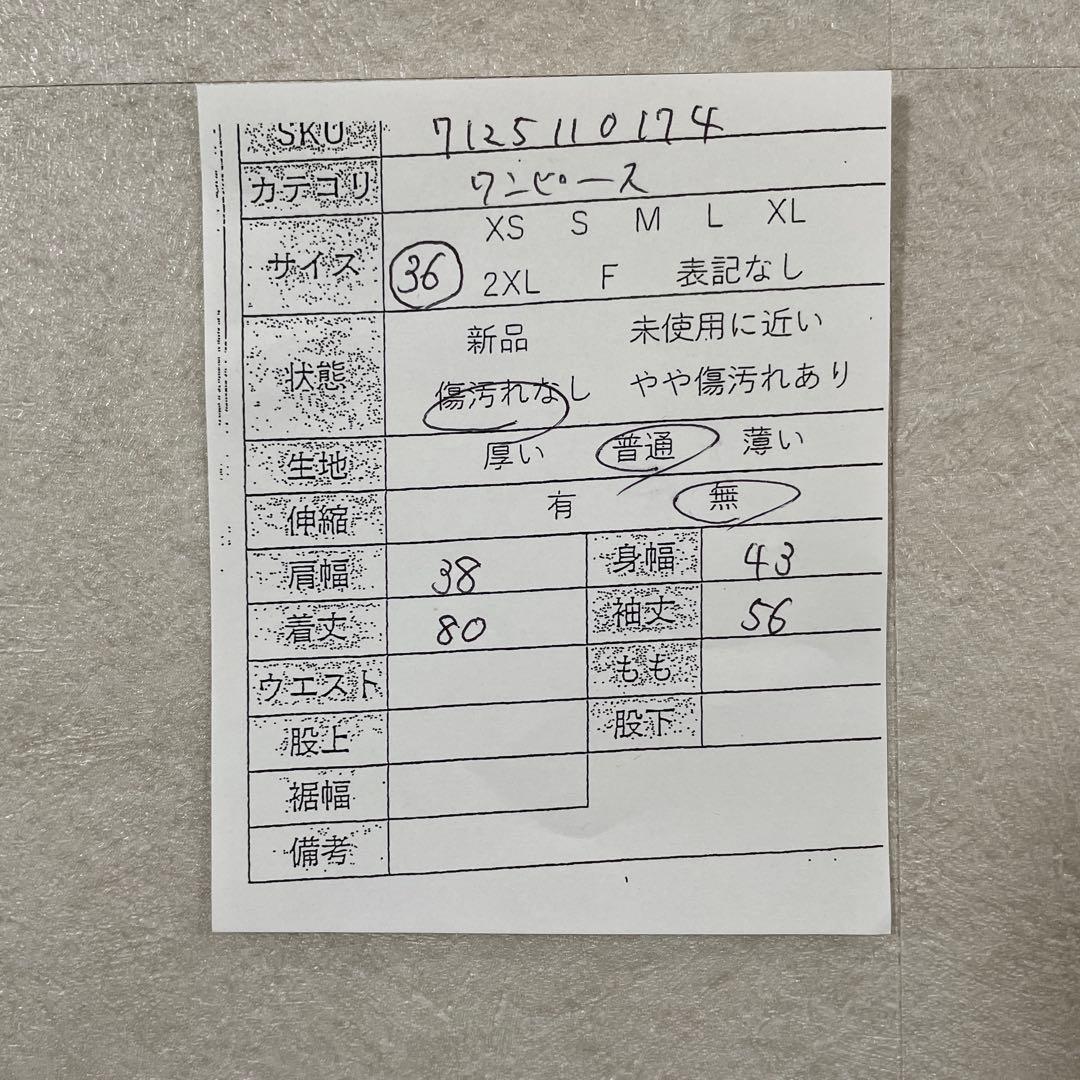 SKU 7125110174
カテゴリ ワンピース
サイズ XS S M L XL
36 2XL F 表記なし
状態 新品 未使用に近い
傷汚れなし やや傷汚れあり
生地 厚い 普通 薄い
伸縮 有 無
肩幅 38 身幅 43
着丈 80 袖丈 56
ウエスト もも
股上 股下
裾幅
備考